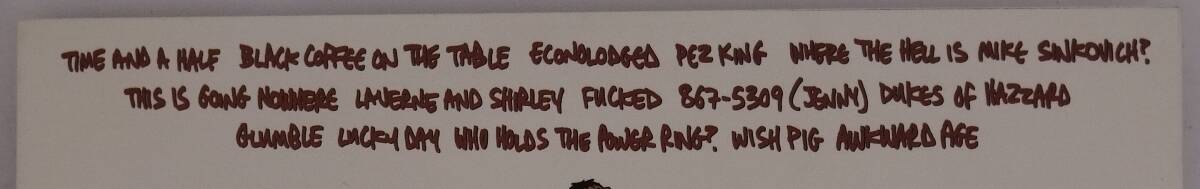 TIME AND A HALF BLACK COFFEE ON THE TABLE ECONOLODGED PEZ KING WHERE THE HELL IS MIKE SINKOVICH?
THIS IS GOING NOWHERE LAVERNE AND SHIRLEY FUCKED 867-5309 (JENNY) DUKES OF HAZZARD
GLUMBLE LUCKY DAY WHO HOLDS THE POWER RING? WISH PIG AWKWARD AGE